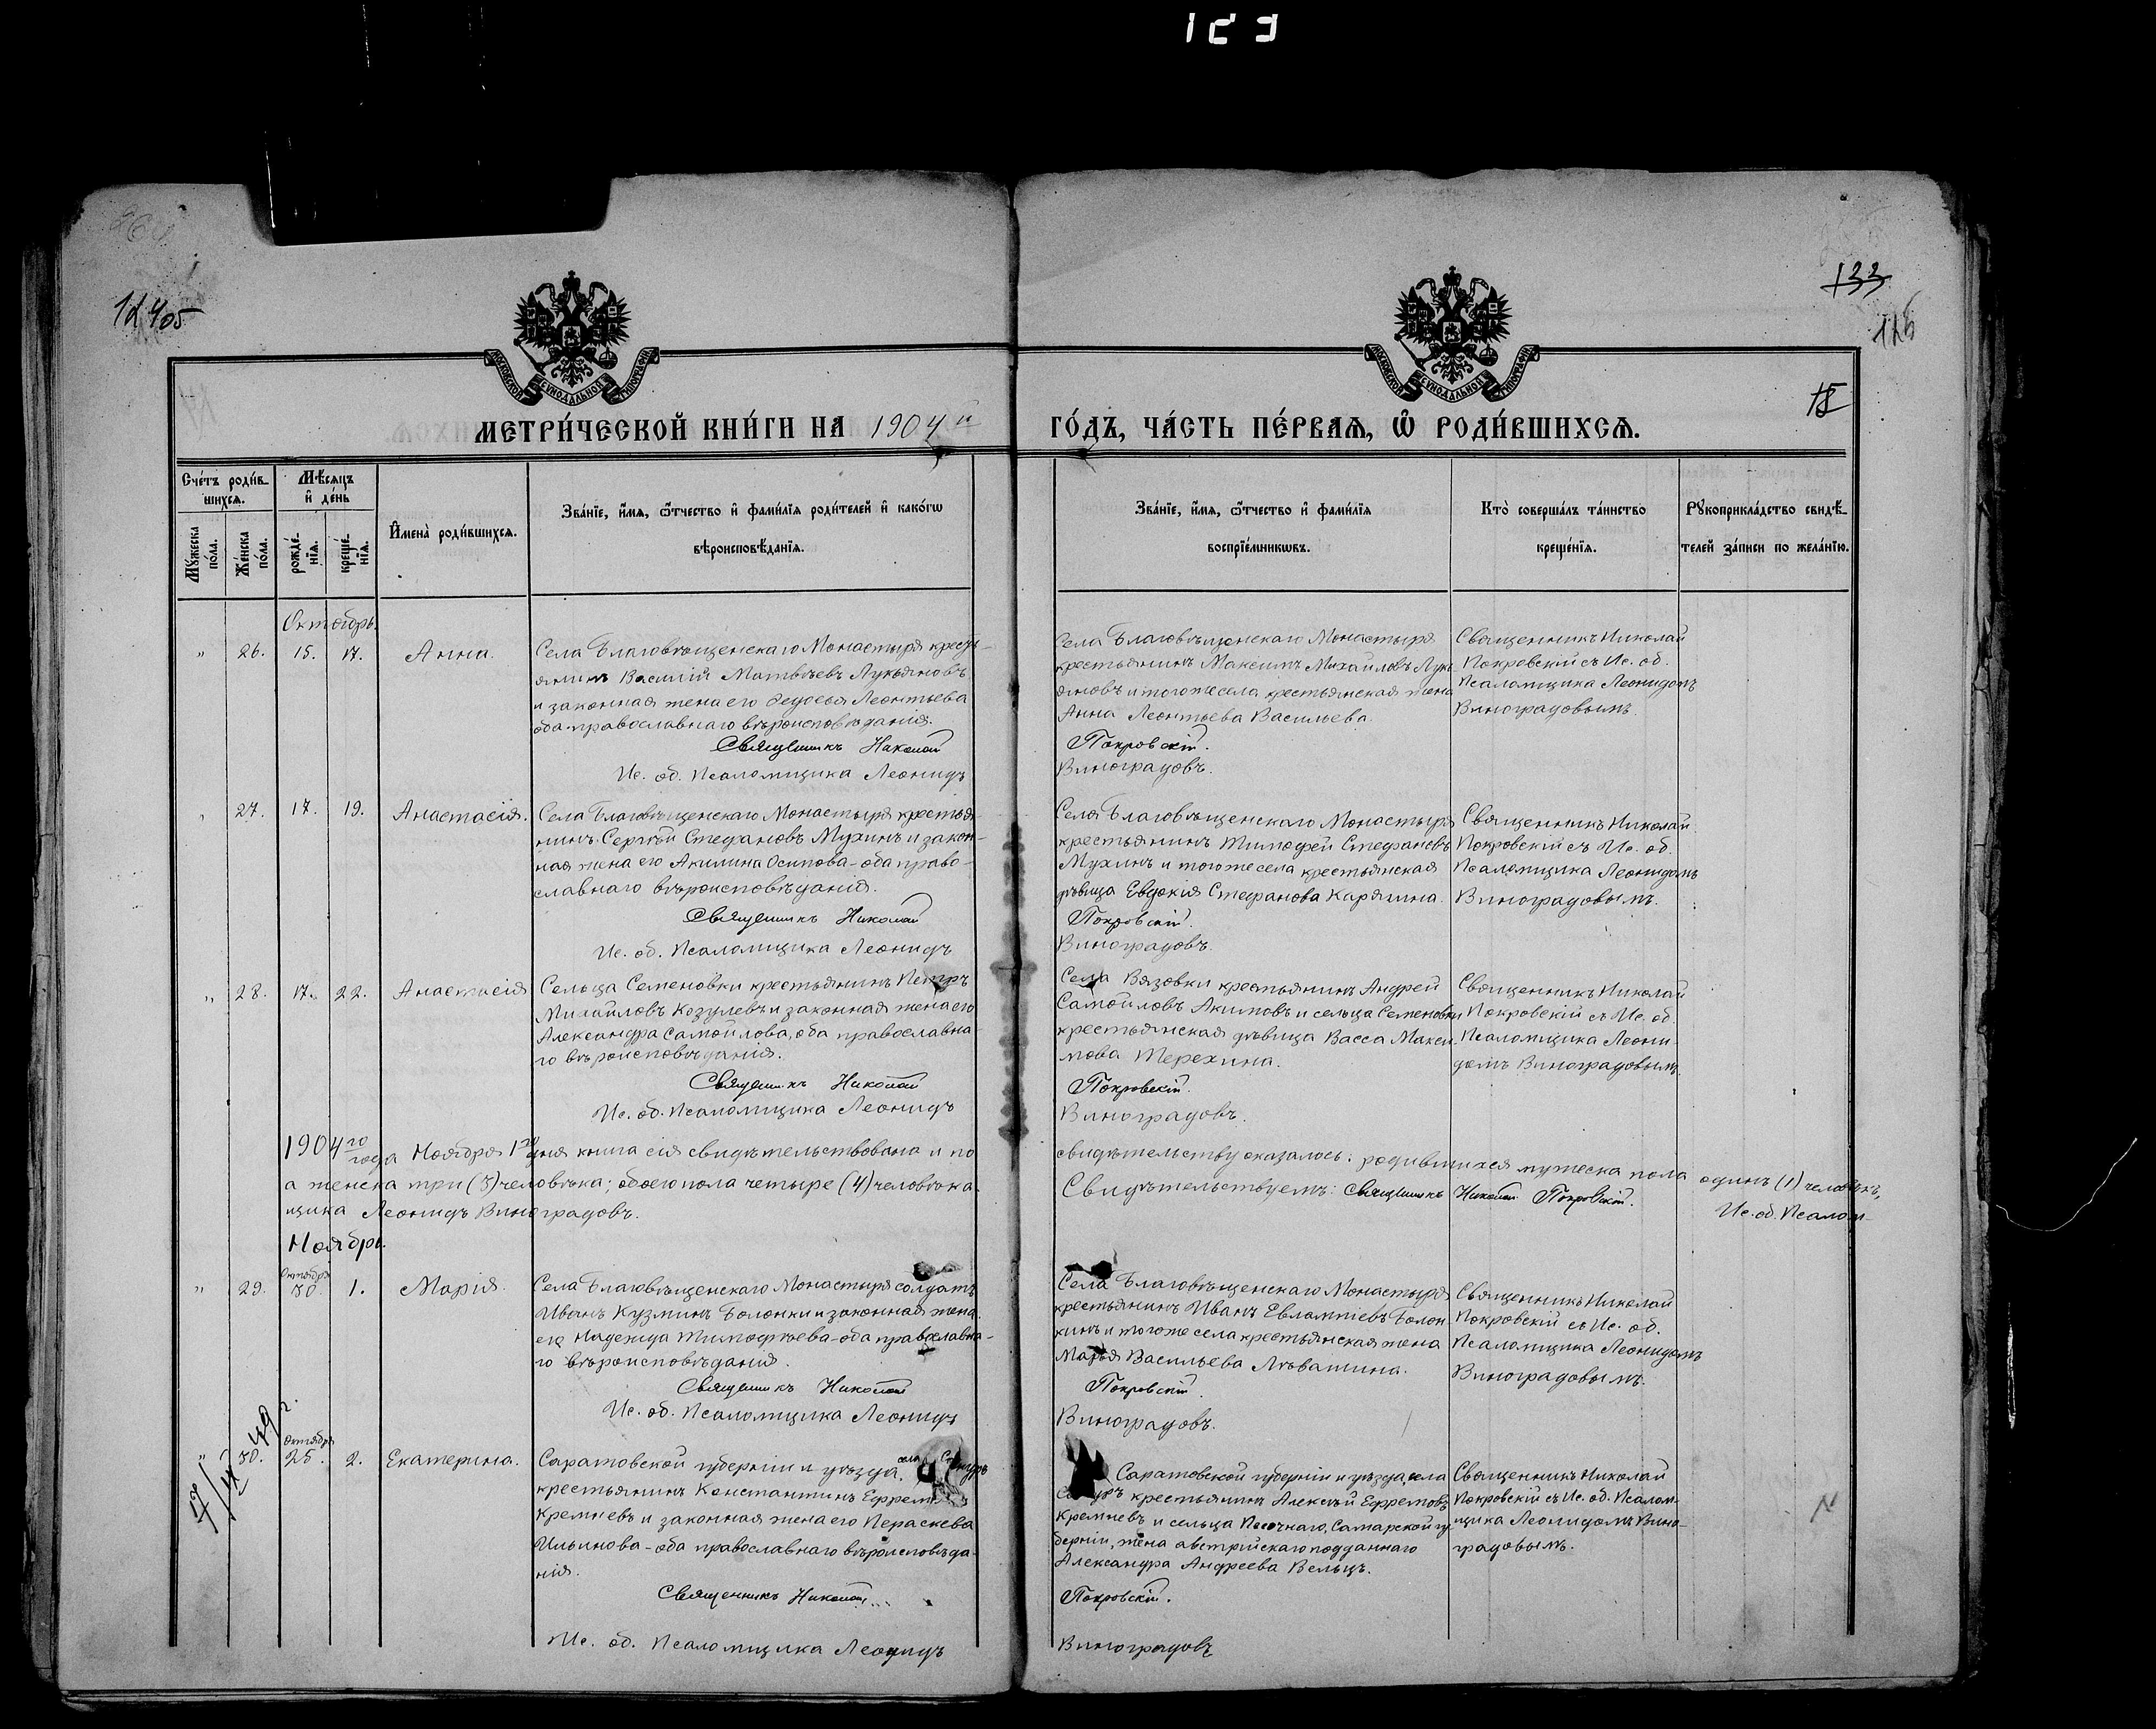 123
133
125
МЕТРИ́ЧЕСКОЙ КНИ́ГИ НА 1904 й ГО́ДЪ, ЧА́СТЬ ПЕ́РВАѦ, Ѽ РОДИ́ВШИХСѦ.
Сче́тъ роди́в-
шихсѧ.
Мѣ́сѧцъ
и҆ де́нь
Мꙋ́жеска
по́ла.
Же́нска
по́ла.
рожде́-
нїѧ.
креще́-
нїѧ.
И҆мена̀ роди́вшихсѧ.
Зва́нїе, и҆́мѧ, ѻ҆́тчество и҆ фами́лїѧ роди́телей и҆ како́гѡ
вѣроисповѣ́данїѧ.
Зва́нїе, и҆́мѧ, ѻ҆́тчество и҆ фами́лїѧ
воспрїе́мникѡвъ.
Кто̀ соверша́лъ та́инство
креще́нїѧ.
Рꙋкоприкла́дство свидѣ́-
телей за́писи по жела́нїю.
Октябрь.
" 26. 15. 17. Анна.
Села Благовѣщенскаго Монастыря кресть-
янинъ Василій Матвѣевъ Лукьяновъ
и законная жена его Ѳедосья Леонтьева
оба православнаго вѣроисповѣданія.
Священникъ Николай
Ис. об. Псаломщика Леонидъ
Села Благовѣщенскаго Монастыря
крестьянинъ Максимъ Михайловъ Лукь
яновъ и того же села крестьянская жена
Анна Леонтьева Васильева.
Покровскій.
Виноградовъ.
Священникъ Николай
Покровскій съ Ис. об.
Псаломщика Леонидомъ
Виноградовымъ.
" 27. 17. 19. Анастасія.
Села Благовѣщенскаго Монастыря крестья-
нинъ Сергѣй Стефановъ Мухинъ и закон-
ная жена его Акилина Осипова - оба право-
славнаго вѣроисповѣданія.
Священникъ Николай
Ис. об. Псаломщика Леонидъ
Села Благовѣщенскаго Монастыря
крестьянинъ Тимофей Стефановъ
Мухинъ и того же села крестьянская
дѣвица Евдокія Стефанова Карягина.
Покровскій.
Виноградовъ.
Священникъ Николай
Покровскій съ Ис. об.
Псаломщика Леонидомъ
Виноградовымъ.
" 28. 17. 22. Анастасія
Сельца Семеновки крестьянинъ Петръ
Михайловъ Козулевъ и законная жена его
Александра Самойлова, оба православна-
го вѣроисповѣданія.
Священникъ Николай
Ис. об. Псаломщика Леонидъ
Села Вязовки крестьянинъ Андрей
Самойловъ Акимовъ и сельца Семеновки
крестьянская дѣвица Васса Макси-
мова Терехина.
Покровскій.
Виноградовъ.
Священникъ Николай
Покровскій съ Ис. об.
Псаломщика Леони-
домъ Виноградовымъ.
1904го года Ноября 1го дня книга сія свидѣтельствована и по свидѣтельству оказалось: родившихся мужеска пола одинъ (1) человѣкъ,
а женска три (3) человѣка; обоего пола четыре (4) человѣка. Свидѣтельствуемъ: Священникъ Николай Покровскій. Ис. об. Псалом-
щика Леонидъ Виноградовъ.
Ноябрь.
Октября
" 29. 30. 1. Марія.
Села Благовѣщенскаго Монастыря солдатъ
Иванъ Кузминъ Болонки и законная жена
его Надежда Тимофѣева - оба православна-
го вѣроисповѣданія.
Священникъ Николай
Ис. об. Псаломщика Леонидъ
Села Благовѣщенскаго Монастыря
крестьянинъ Иванъ Евлампіевъ Болон-
кинъ и того же села крестьянская жена
Марья Васильева Лѣвашина.
Покровскій.
Виноградовъ.
Священникъ Николай
Покровскій съ Ис. об.
Псаломщика Леонидомъ
Виноградовымъ.
Октября
" 30. 25. 2. Екатерина.
Саратовской губерніи и уѣзда, села
крестьянинъ Константинъ
Кремневъ и законная жена его Параскева
Ильинова - оба православнаго вѣроисповѣда-
нія.
Священникъ Николай
Ис. об. Псаломщика Леонидъ
Саратовской губерніи и уѣзда, села
крестьянинъ Алексѣй Ефремовъ
Кремневъ и сельца Песочнаго, Самарской гу-
берніи, жена австрійскаго подданнаго
Александра Андреева Вельцъ.
Покровскій.
Виноградовъ
Священникъ Николай
Покровскій съ Ис. об. Псалом-
щика Леонидомъ Вино-
градовымъ.